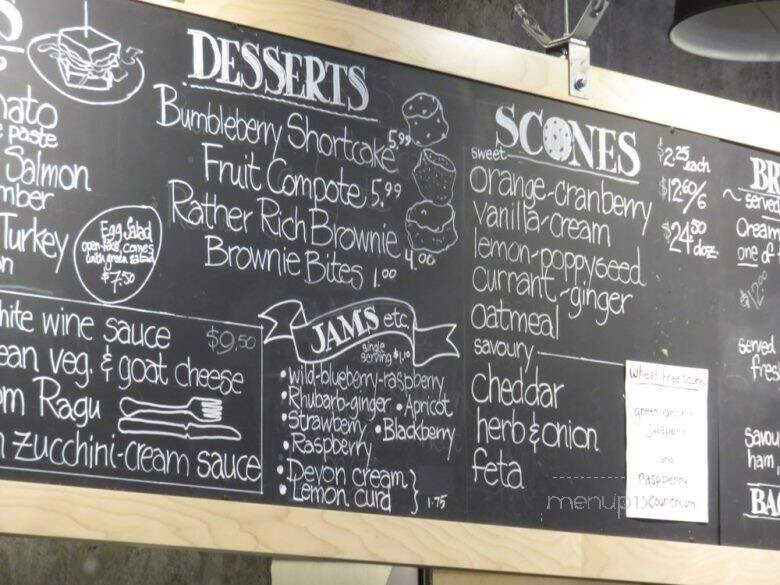 paste
Salmon
Turkey
Egg Salad
open-face, comes
with green salad
$7.50
white wine sauce $9.50
veg. & goat cheese
Ragu
Zucchini-cream sauce
DESSERTS
Bumbleberry Shortcake 5.99
Fruit Compote 5.99
Rather Rich Brownie 4.00
Brownie Bites 1.00
JAMS etc.
single
serving $1.10
• wild-blueberry-raspberry
• Rhubarb-ginger • Apricot
• Strawberry • Blackberry
• Raspberry
• Devon cream
• Lemon curd } 1.75
SCONES
$2.25 each
$12.60/6
$24.50 doz.
sweet
orange-cranberry
vanilla-cream
lemon-poppyseed
currant-ginger
oatmeal
savoury
cheddar
herb & onion
feta
Wheat Free Scones
green onion
jalapeno
and
raspberry
sour cream
served
Cream
one of
served
fres
savou
ham
BA
menupix